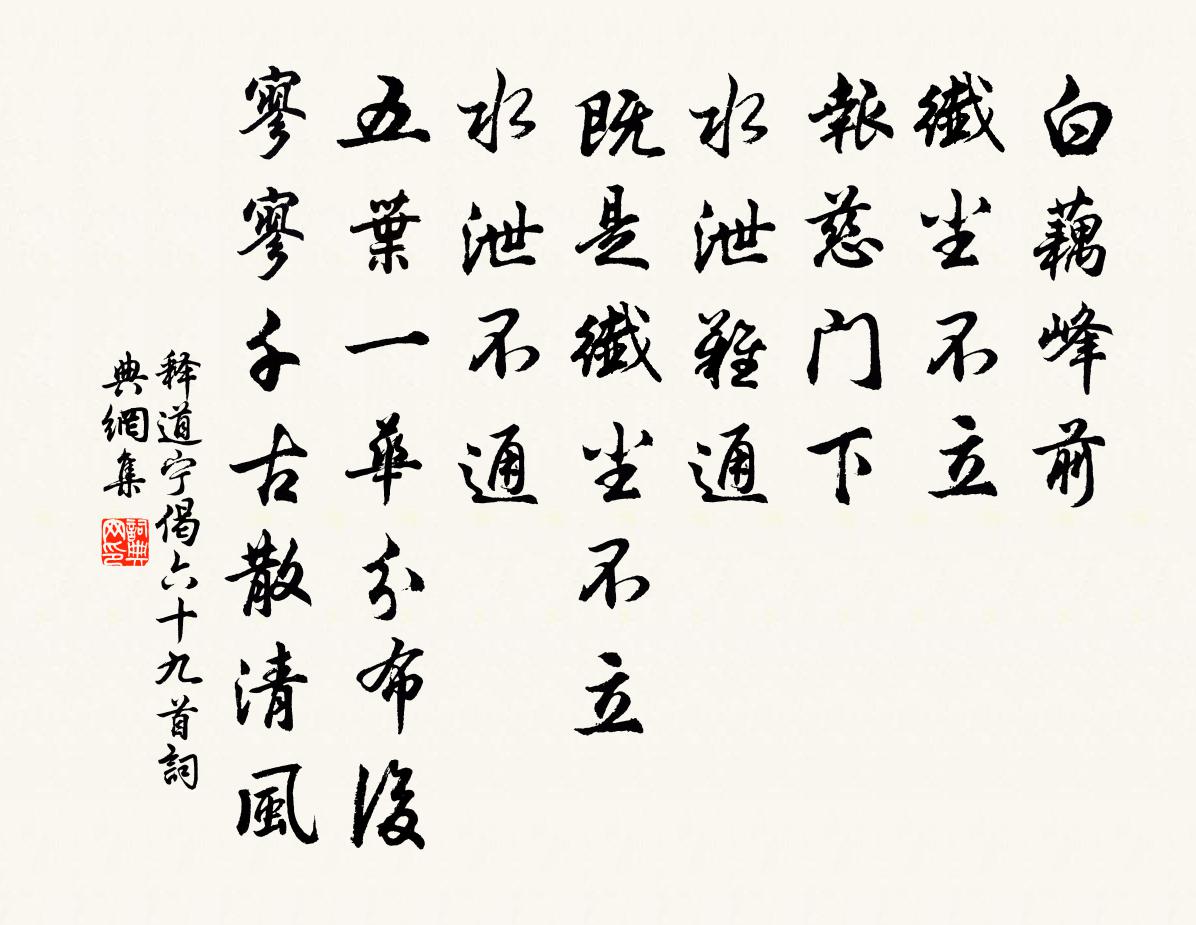 白藕峰前
纖尘不立
報慈门下
水泄難通
既是纖尘不立
水泄不通
五葉一華分布後
寥寥千古散清風
释道宁偈六十九首詞
典網集
詞典
网印